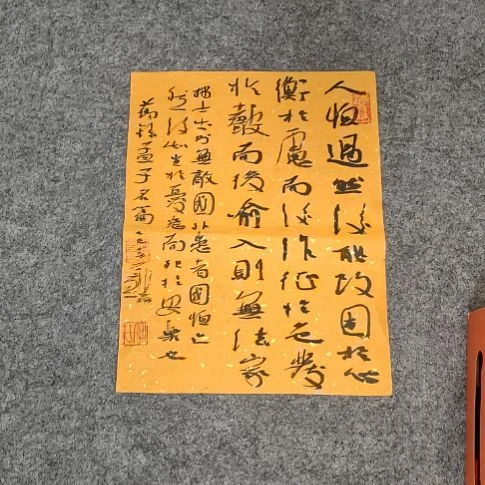 人恒過然後能改困於心
衡於慮而後作徵於色發
於聲而後喻入則無法家
拂士出則無敵國外患者國恒亡
然後知生於憂患而死於安樂也
節錄孟子名篇